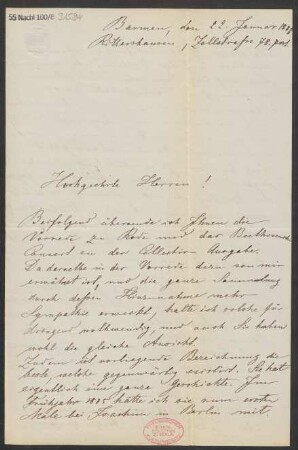 55 Nachl 100/B
Barmen, den 22. Januar
Rittershausen,
Hochgeehrte Herren!
Beifolgend übersende ich Ihnen die
Vorrede zu Rode und das Beethoven
Concert zu der Collection Ausgabe.
Da derselbe in der Vorrede
erwähnt ist, und die ganze Sammlung
durch dessen mehr
Sympathie erweckt, halte ich solche für
dringend nothwendig, und auch Sie haben
wohl die gleiche Ansicht.
Zudem ist vorliegende Bezeichnung die
beste, welche gegenwärtig existirt. Sie hat
eigentlich eine ganze Geschichte. Im
Frühjahr 1885 hatte ich sie zum ersten
Male bei Joachim in Berlin mit.